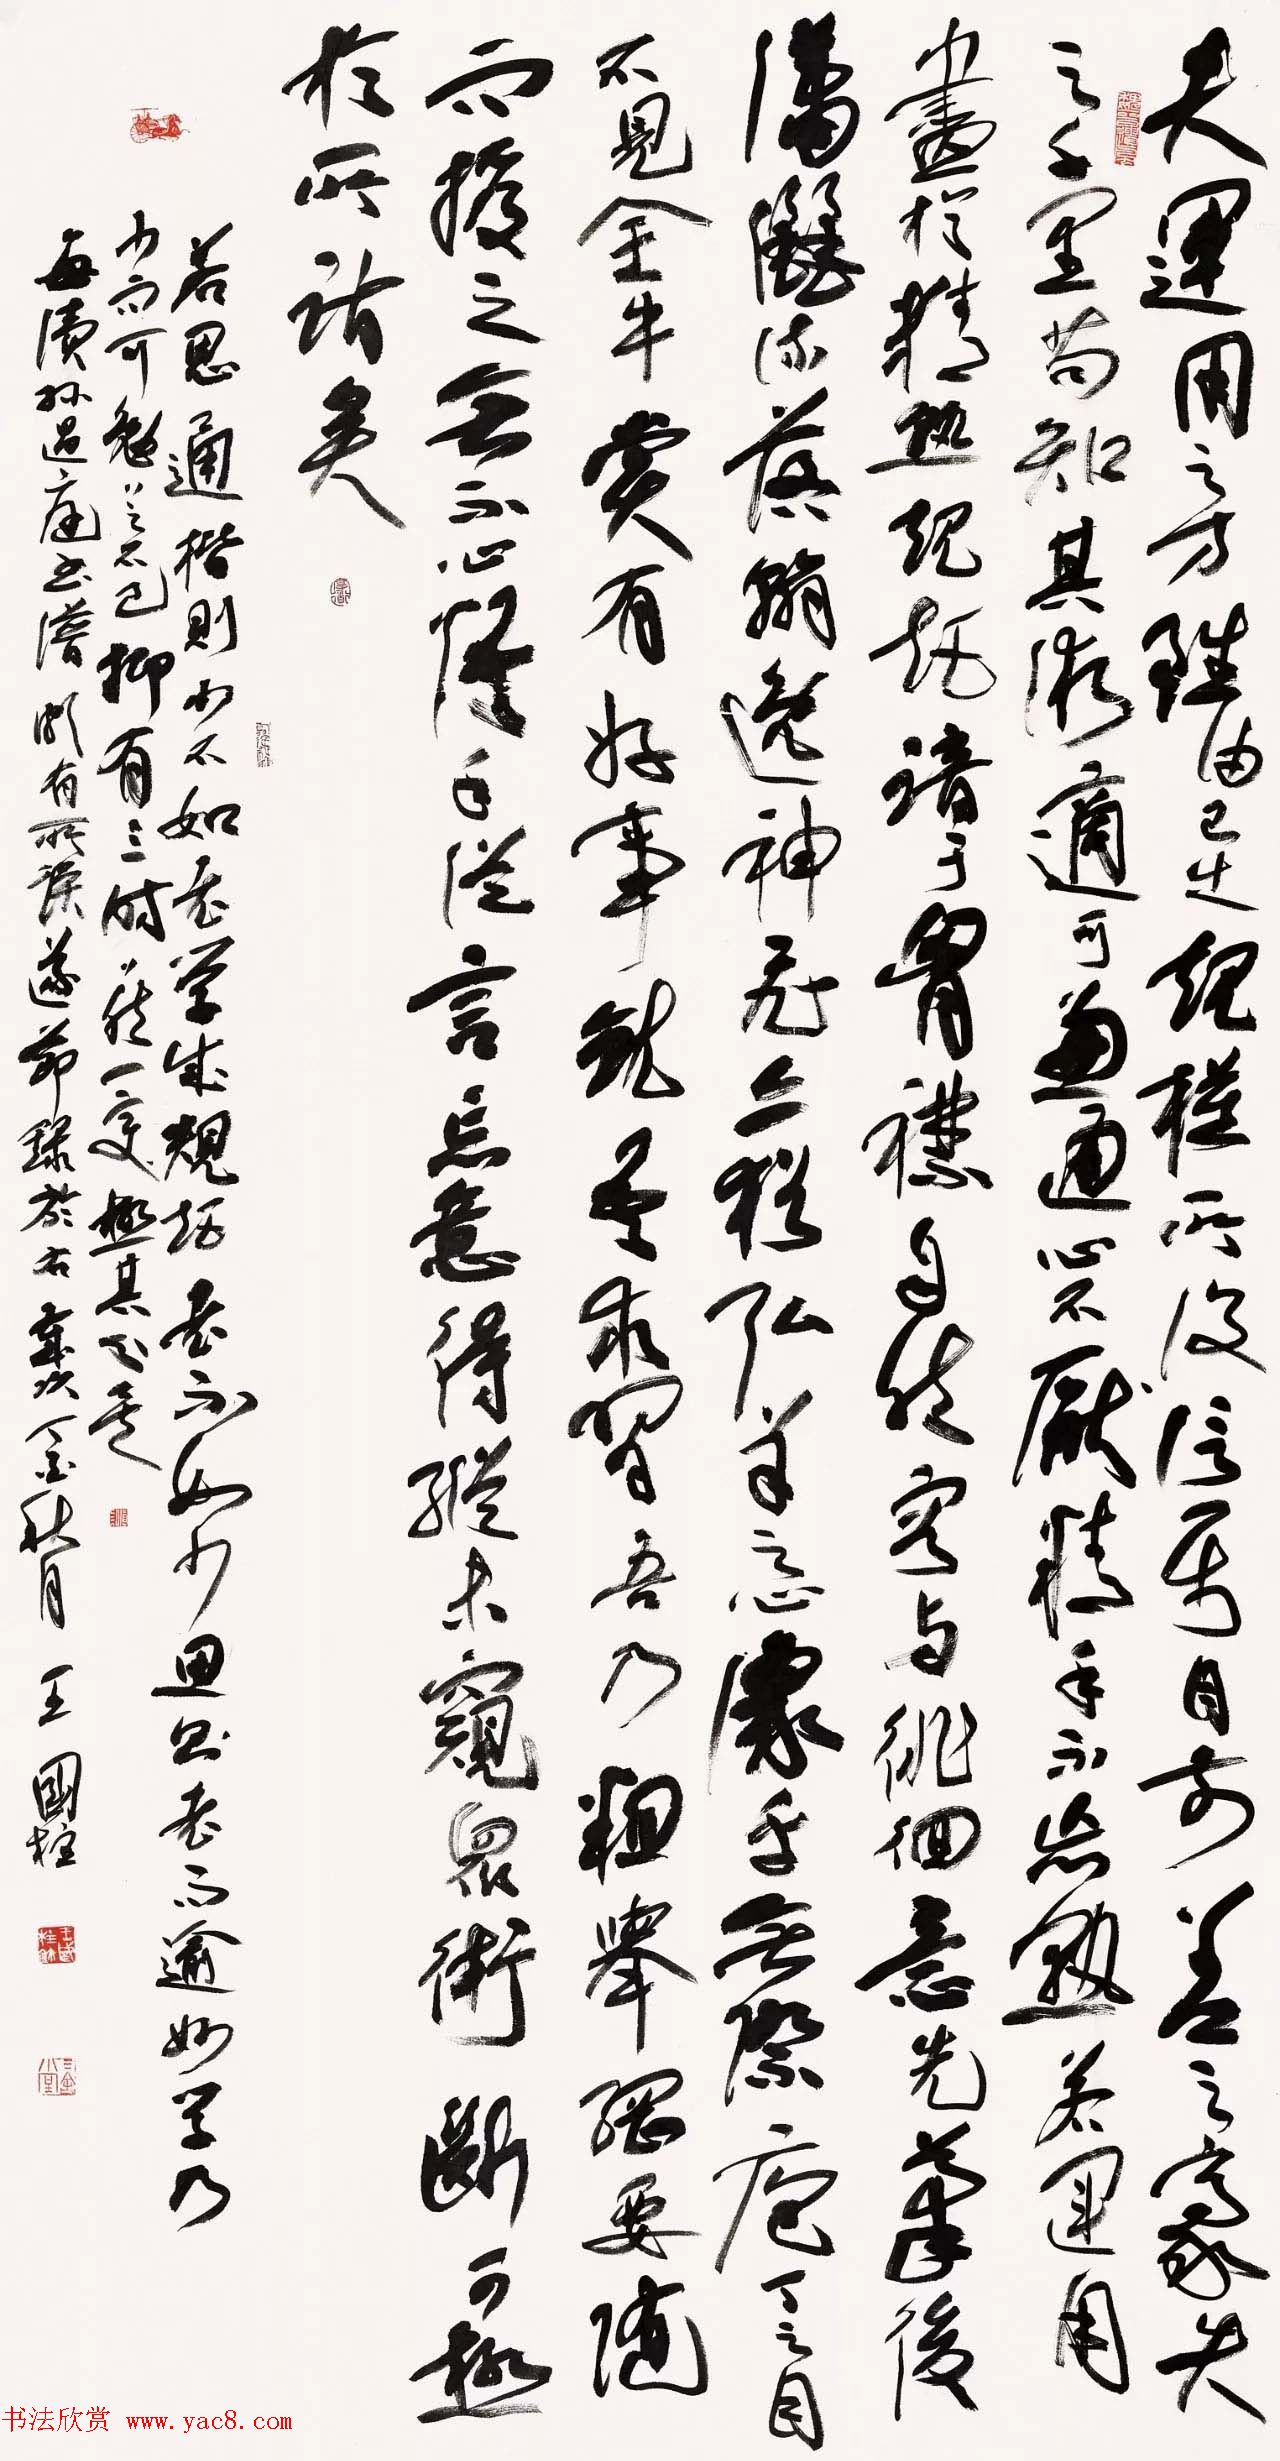 夫運用之方雖由己出規模所設信屬目前差之一豪失
之千里苟知其術適可兼通心不厭精手不忘熟若運用
盡於精熟規矩諳于胷襟自然容與徘徊意先筆後
瀟灑流落翰逸神飛亦猶弘羊之心豫乎無際庖丁之目
不見全牛嘗有好事就吾求習吾乃粗舉綱要隨
而授之無不心悟手從言忘意得縱未窺眾術斷可極
於所詣矣
若思通楷則少不如老學成規矩老不如少思則老而逾妙學乃
少而可勉勉之不已抑有三時時然一變極其分矣
每讀孫過庭書譜頗有所獲遂節錄於右歲次金秋月 王國柱
书法欣赏 www.yac8.com